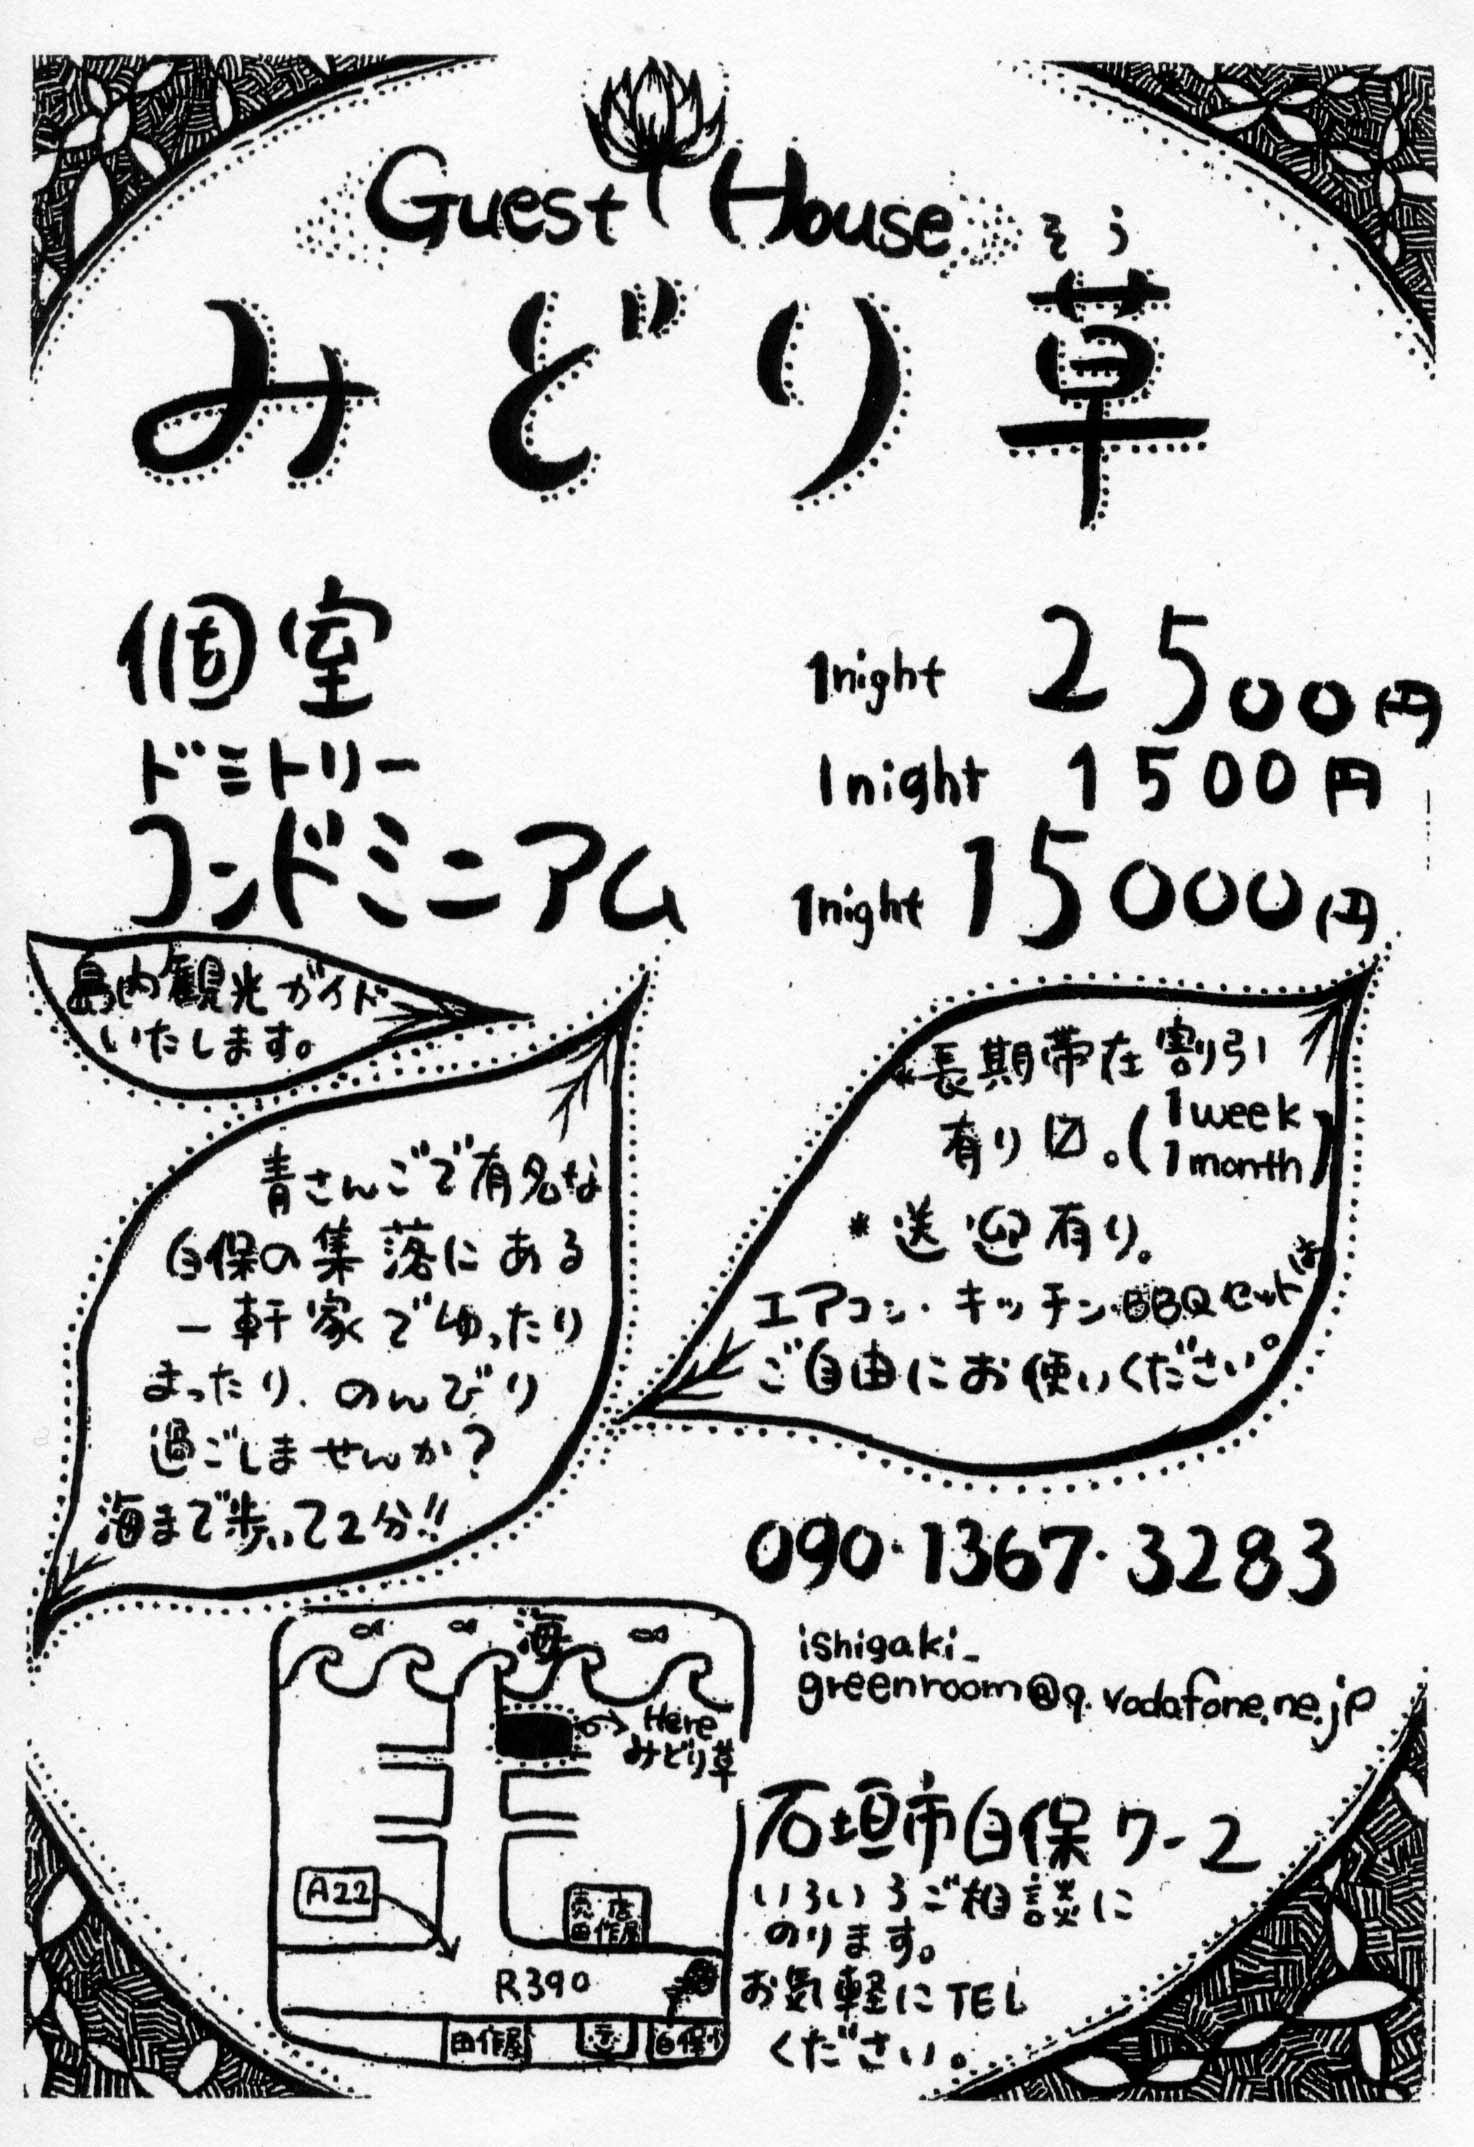 Guest House
そう
みどり草
個室 1night 2500円
ドミトリー 1night 1500円
コンドミニアム 1night 15000円
島内観光ガイド
いたします。
青さんごで有名な
白保の集落にある
一軒家でゆったり
まったり、のんびり
過ごしませんか?
海まで歩いて2分!!
*長期帯在割引
有り〼。(1week
1month)
*送迎有り。
エアコン・キッチン・BBQセットは
ご自由にお使いください。
090・1367・3283
ishigaki_
greenroom@q.vodafone.ne.jp
海
Here
みどり草
A22
売店
田作屋
R390
田作屋
白保小
石垣市白保7-2
いろいろご相談に
のります。
お気軽にTEL
ください。